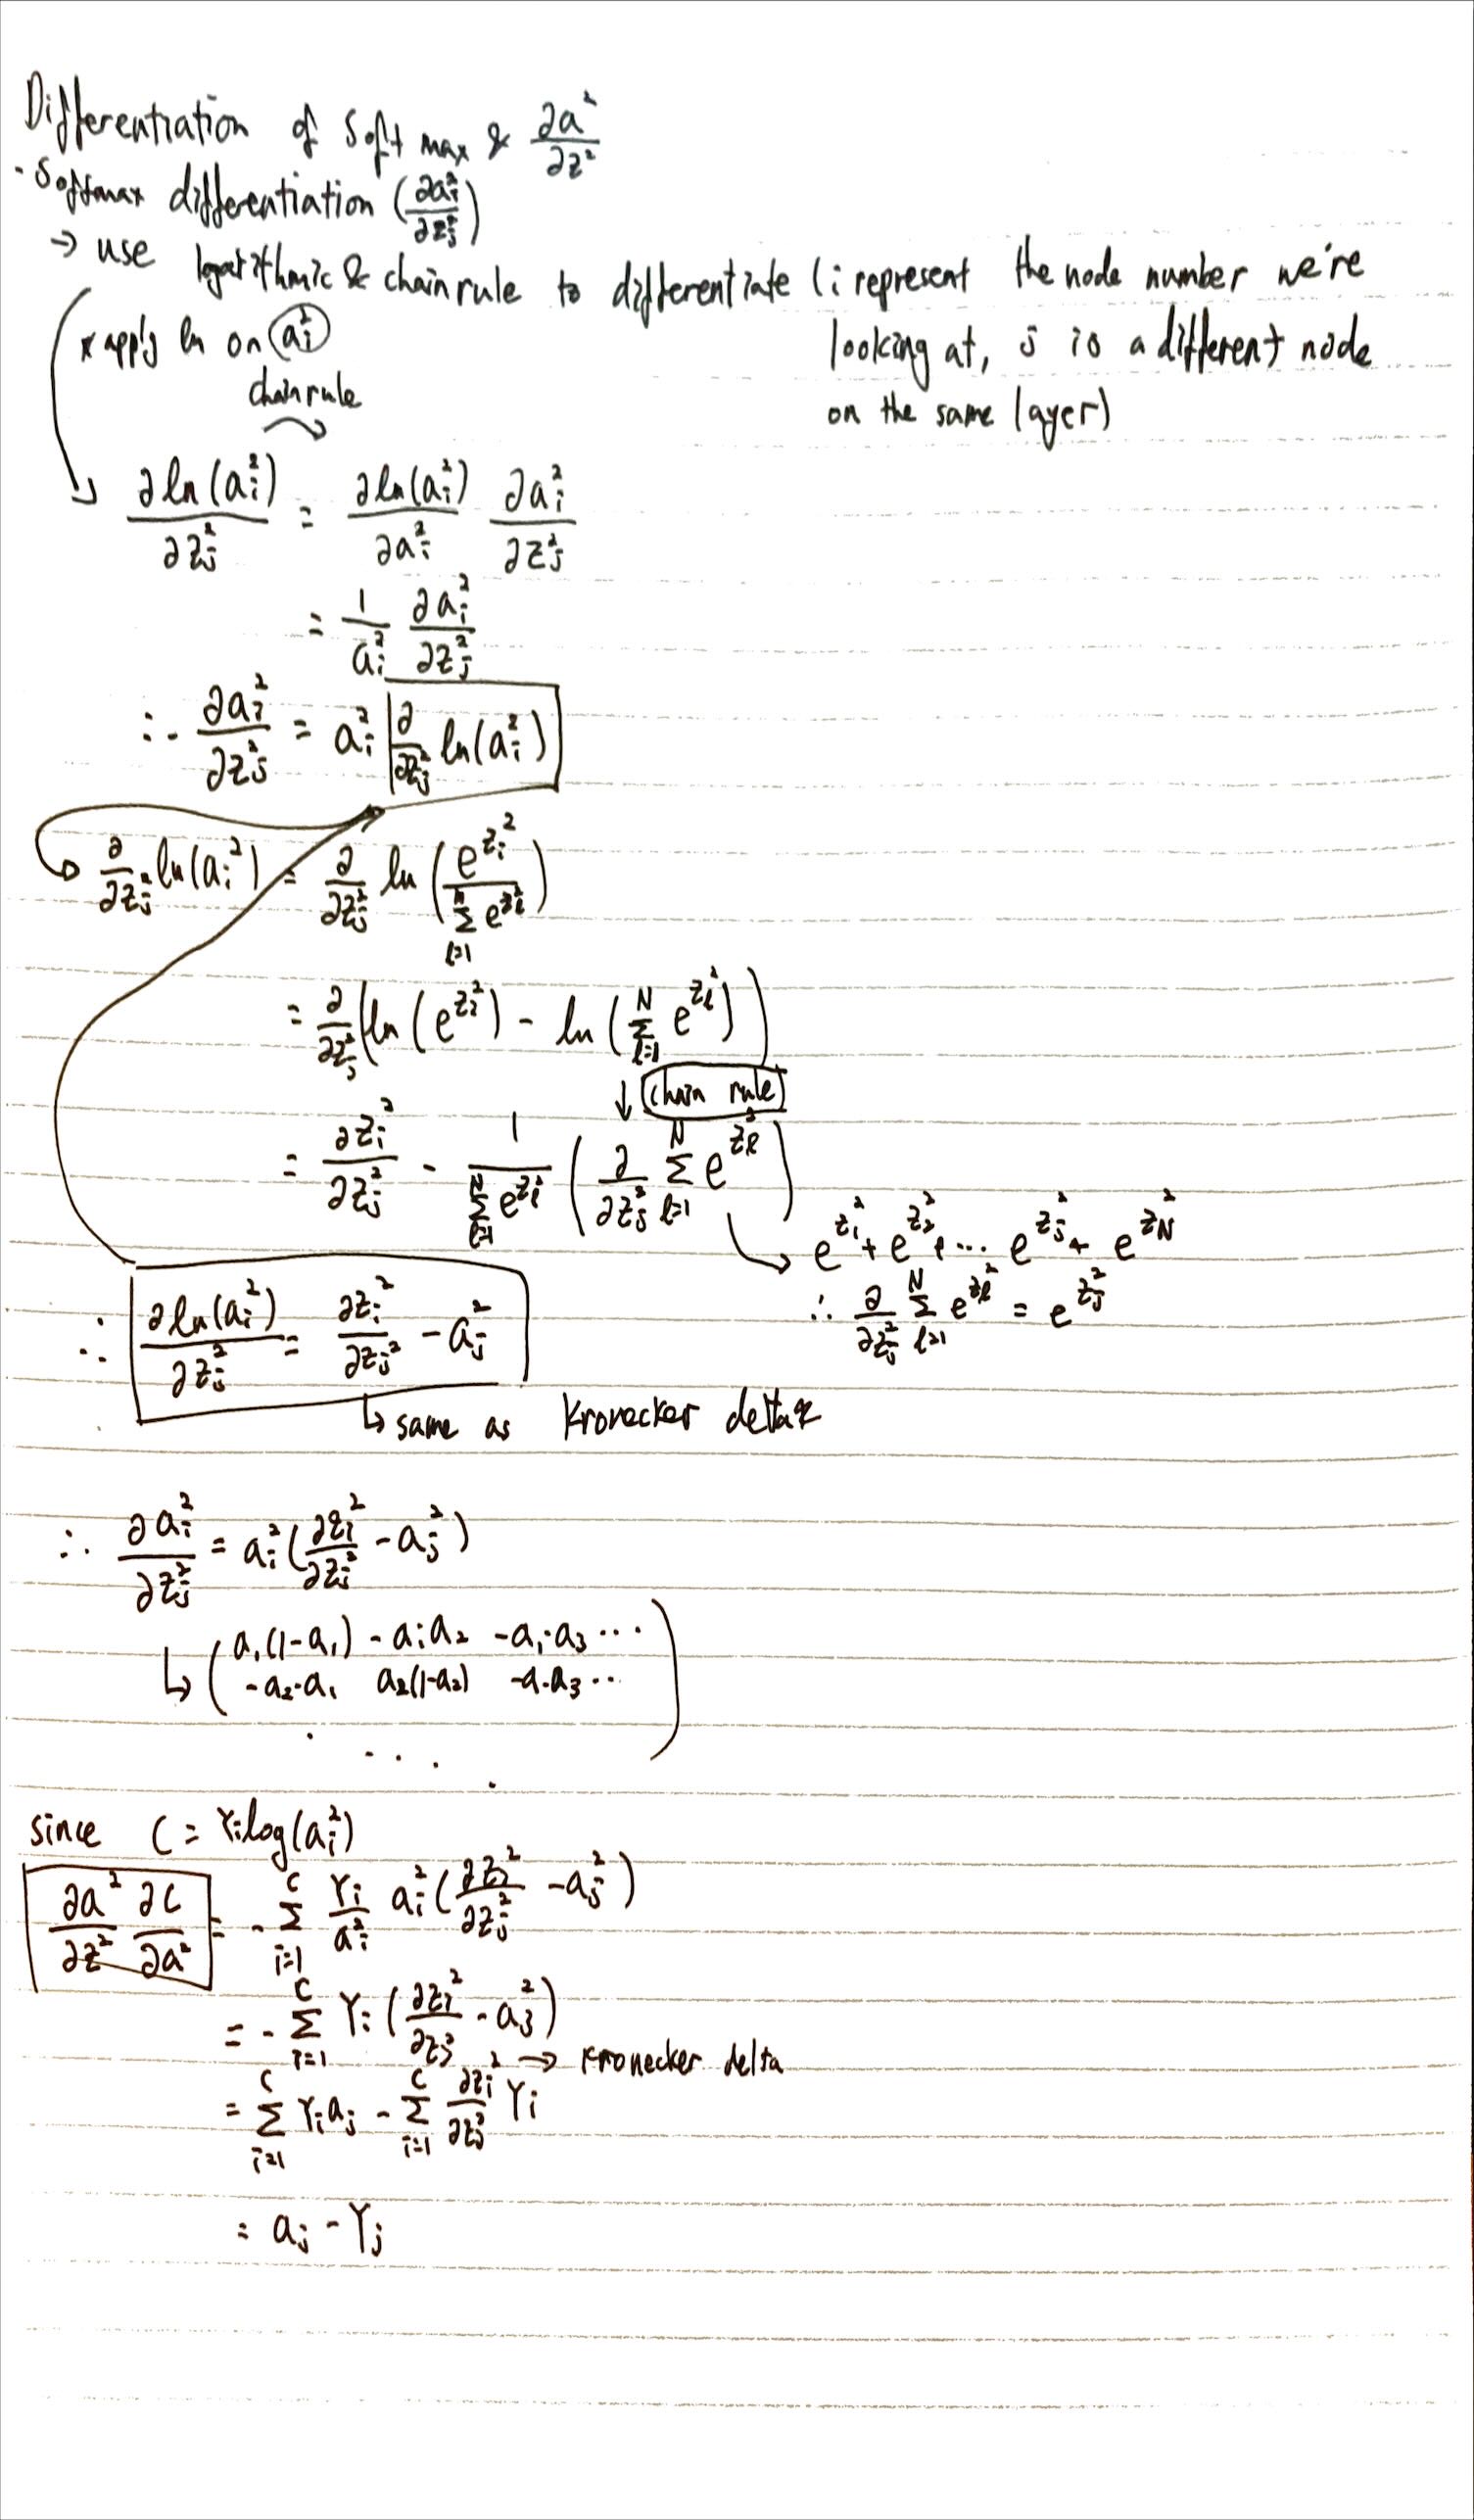 Differentiation of Softmax & ∂a²/∂z²
· Softmax differentiation (∂aᵢ²/∂zⱼ²)
→ use logarithmic & chainrule to differentiate (i represent the node number we're
looking at, j is a different node
on the same layer)
* apply ln on aᵢ²
chainrule
∂ln(aᵢ²)/∂zⱼ² = ∂ln(aᵢ²)/∂aᵢ² ∂aᵢ²/∂zⱼ²
= 1/aᵢ² ∂aᵢ²/∂zⱼ²
∴ ∂aᵢ²/∂zⱼ² = aᵢ² ∂/∂zⱼ² ln(aᵢ²)
∂/∂zⱼ² ln(aᵢ²) = ∂/∂zⱼ² ln(e^{zᵢ²} / Σ_{l=1}^{N} e^{z_l²})
= ∂/∂zⱼ² (ln(e^{zᵢ²}) - ln(Σ_{l=1}^{N} e^{z_l²}))
↓ chain rule
= ∂zᵢ²/∂zⱼ² - 1/(Σ_{l=1}^{N} e^{z_l²}) (∂/∂zⱼ² Σ_{l=1}^{N} e^{z_l²})
→ e^{z₁²} + e^{z₂²} + ... e^{zⱼ²} + e^{z_N²}
∴ ∂/∂zⱼ² Σ_{l=1}^{N} e^{z_l²} = e^{zⱼ²}
∴ ∂ln(aᵢ²)/∂zⱼ² = ∂zᵢ²/∂zⱼ² - aⱼ²
↳ same as Kronecker delta
∴ ∂aᵢ²/∂zⱼ² = aᵢ² (∂zᵢ²/∂zⱼ² - aⱼ²)
↳ ( a₁(1-a₁) - a₁a₂ -a₁·a₃ ...
-a₂·a₁ a₂(1-a₂) -a·a₃ ... )
since C = Yᵢlog(aᵢ²)
∂a²/∂z² ∂C/∂a² = - Σ_{i=1}^{C} Yᵢ/aᵢ² aᵢ² (∂zᵢ²/∂zⱼ² - aⱼ²)
= - Σ_{i=1}^{C} Yᵢ (∂zᵢ²/∂zⱼ² - aⱼ²)
→ Kronecker delta
= Σ_{i=1}^{C} Yᵢaⱼ - Σ_{i=1}^{C} ∂zᵢ²/∂zⱼ² Yᵢ
= aⱼ - Yⱼ